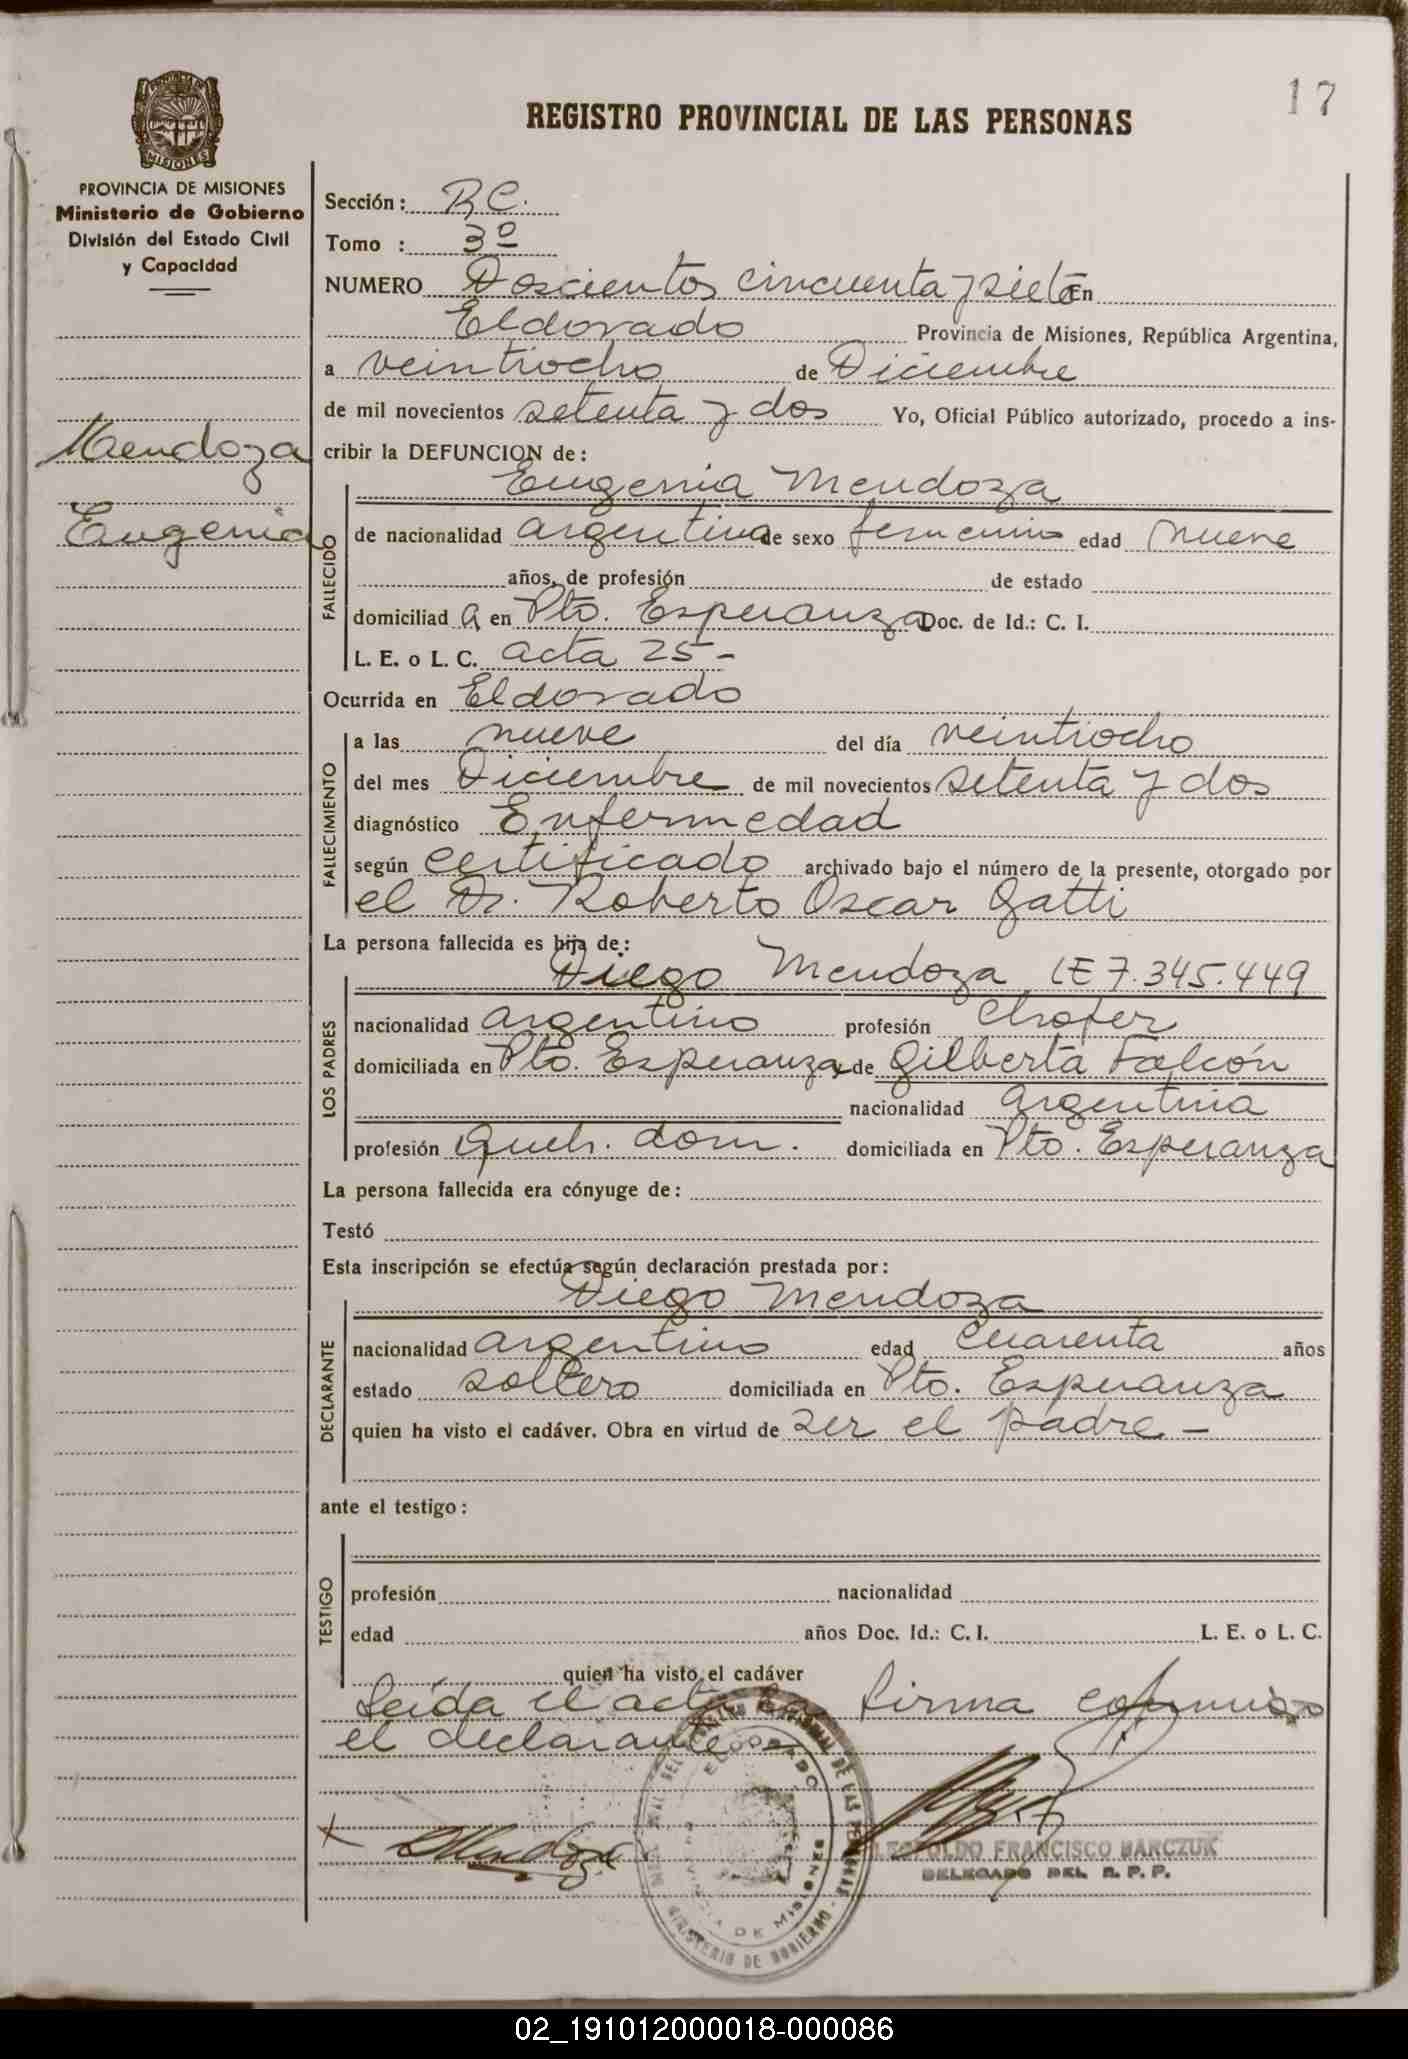 17
REGISTRO PROVINCIAL DE LAS PERSONAS
PROVINCIA DE MISIONES
MISIONES
PROVINCIA DE MISIONES
Ministerio de Gobierno
División del Estado Civil
y Capacidad
Mendoza
Eugenia
Sección: R C.
Tomo : 3º
NUMERO Doscientos cincuenta y siete En
Eldorado Provincia de Misiones, República Argentina,
a veintiocho de Diciembre
de mil novecientos setenta y dos Yo, Oficial Público autorizado, procedo a ins-
cribir la DEFUNCION de:
Eugenia Mendoza
FALLECIDO
de nacionalidad argentina de sexo femenino edad nueve
años, de profesión de estado
domiciliad a en Pto. Esperanza Doc. de Id.: C. I.
L. E. o L. C. acta 25 -
Ocurrida en Eldorado
FALLECIMIENTO
a las nueve del día veintiocho
del mes Diciembre de mil novecientos setenta y dos
diagnóstico Enfermedad
según certificado archivado bajo el número de la presente, otorgado por
el Dr. Roberto Oscar Gatti
La persona fallecida es hija de:
Diego Mendoza LE 7.345.449
LOS PADRES
nacionalidad argentino profesión Chofer
domiciliada en Pto. Esperanza y de Gilberta Falcón
nacionalidad argentina
profesión Queh. dom. domiciliada en Pto. Esperanza
La persona fallecida era cónyuge de:
Testó
Esta inscripción se efectúa según declaración prestada por:
Diego Mendoza
DECLARANTE
nacionalidad argentino edad cuarenta años
estado soltero domiciliada en Pto. Esperanza
quien ha visto el cadáver. Obra en virtud de ser el padre -
ante el testigo:
TESTIGO
profesión nacionalidad
edad años Doc. Id.: C. I. L. E. o L. C.
quien ha visto el cadáver
Leída el acta la firma conmigo
el declarante
ELDORADO
PROVINCIA DE MISIONES
MINISTERIO DE GOBIERNO
DMendoza
LEOPOLDO FRANCISCO BARCZUK
DELEGADO DEL R. P. P.
02_191012000018-000086